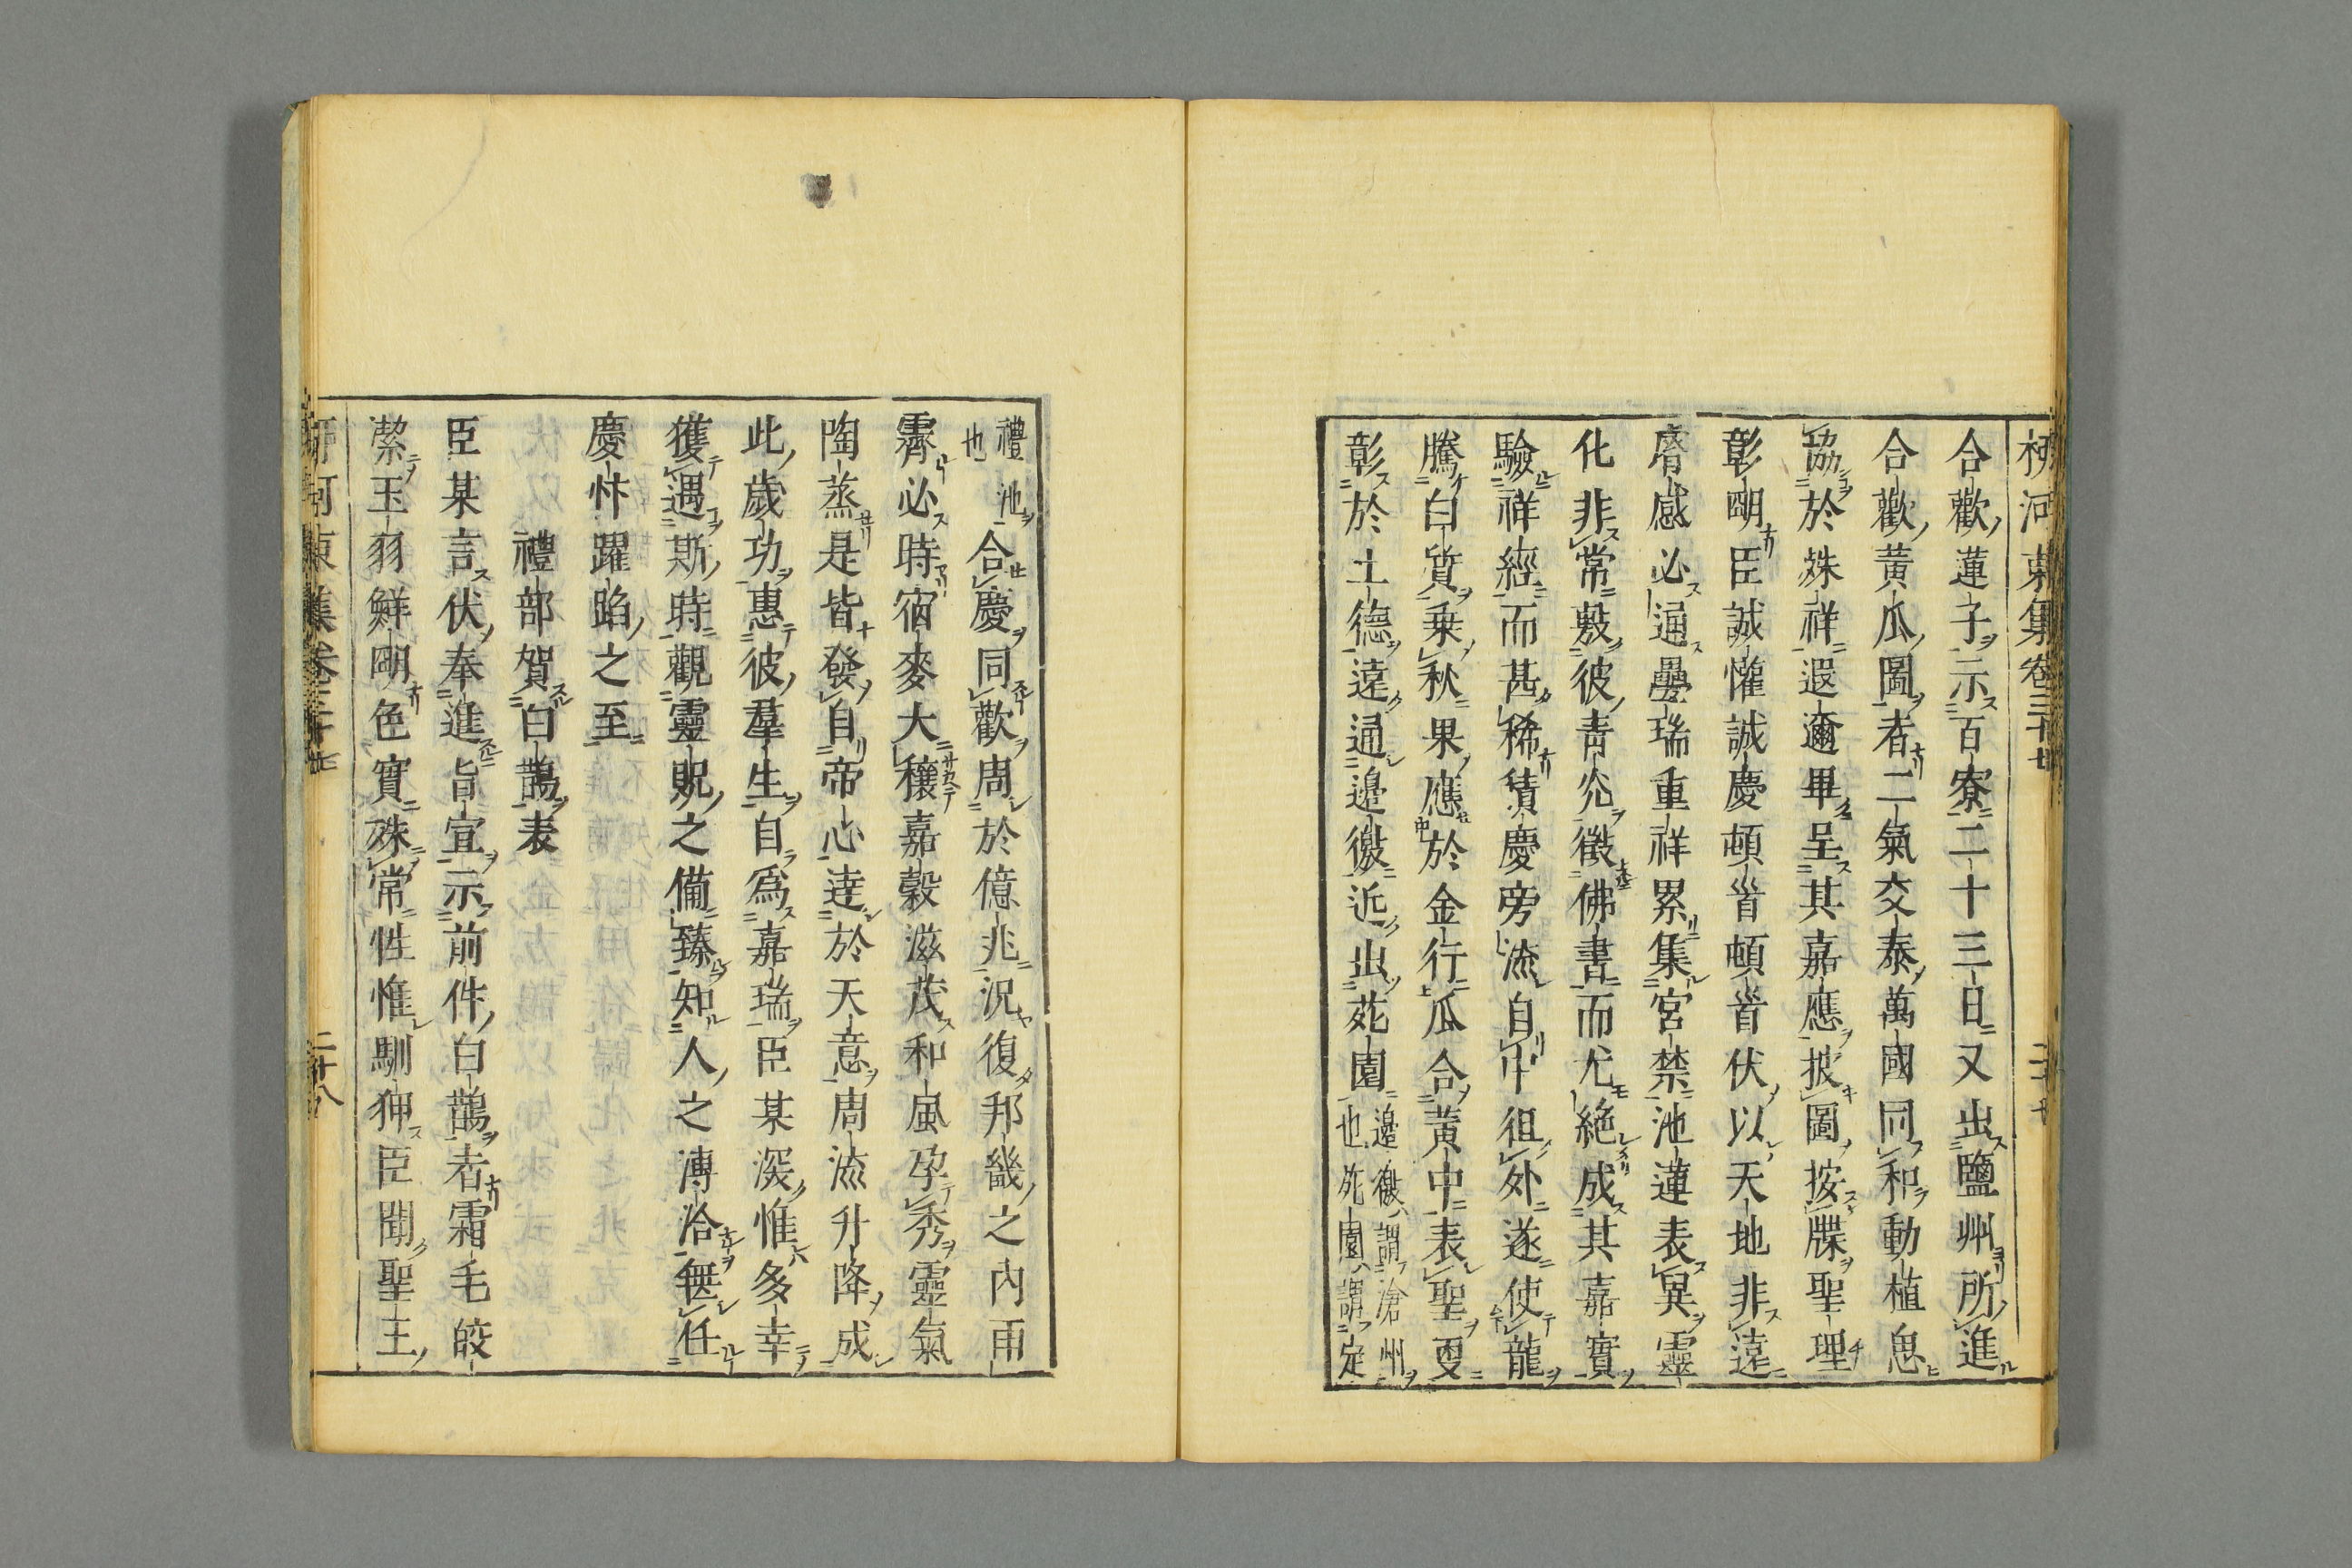 柳河東集卷三十七
二十七
合歡蓮子示百寮二十三日又出鹽州所進
合歡黃瓜圖者二氣交泰萬國同和動植思
協於殊祥遐邇畢呈其嘉應披圖按牒聖理
彰明臣誠懽誠慶頓首頓首伏以天地非遠
脣感必通曡瑞重祥累集宮禁池蓮表異靈
化非常敷彼青光徵佛書而尤絕成其嘉實
驗祥經而甚稀積慶旁流自中徂外遂使龍
騰白質乗秋果應於金行瓜合黃中表聖更
彰於土德遠通邊徼近出苑園邊徼謂滄州
也苑園謂定
禮池
也合慶同歡周於億兆況復邦畿之內雨
霽必時宿麥大穰嘉穀滋茂和風孕秀靈氣
陶蒸是皆發自帝心達於天意周流升降成
此歲功惠彼羣生自爲嘉瑞臣某深惟多幸
獲遇斯時觀靈貺之備臻知人之溥洽無任
慶忭躍蹈之至
禮部賀白鵲表
臣某言伏奉進旨宣示前件白鵲者霜毛皎
潔玉羽鮮明色實殊常性惟馴狎臣聞聖王
柳河東集卷三十七
二十八